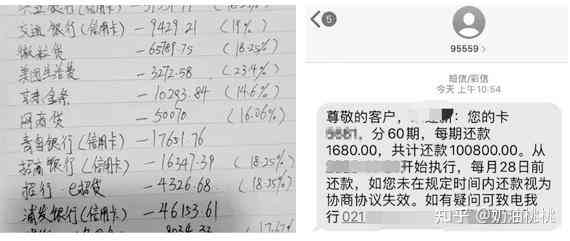 交通银行(信用卡) -9429.21 (19%)
微粒贷 -65789.75 (18.25%)
美团生活费 -3272.58 (23.4%)
京东金条 -10293.84 (14.6%)
网商贷 -50070 (16.06%)
青岛银行(信用卡) -17651.76
招商银行(信用卡) -16347.39 (18.25%)
招行e招贷 -4326.68 (18.25%)
浦发银行(信用卡) -46153.61
5
95559
短信/彩信
今天 上午 10:54
尊敬的客户,
您的卡
分60期,每期还款
1680.00,共计还款100800.00。从
开始执行,每月28日前
还款,如您未在规定时间内还款视为
协商协议失效。如有疑问可致电我
行021
知乎 @奶油桃桃